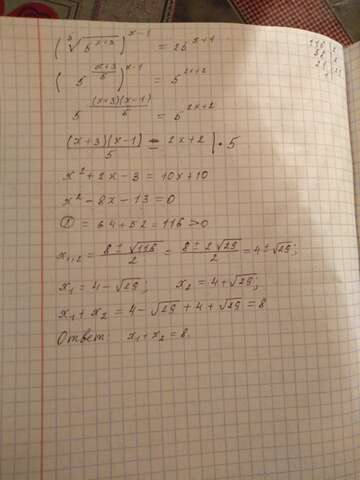 (⁵√(5^(x+3)))^(x-1) = 25^(x+1)
(5^((x+3)/5))^(x-1) = 5^(2x+2)
5^((x+3)(x-1)/5) = 5^(2x+2)
(x+3)(x-1)/5 = 2x+2 | · 5
x² + 2x - 3 = 10x + 10
x² - 8x - 13 = 0
D = 64 + 52 = 116 > 0
x₁,₂ = (8 ± √116)/2 = (8 ± 2√29)/2 = 4 ± √29;
x₁ = 4 - √29; x₂ = 4 + √29;
x₁ + x₂ = 4 - √29 + 4 + √29 = 8
Ответ: x₁ + x₂ = 8.